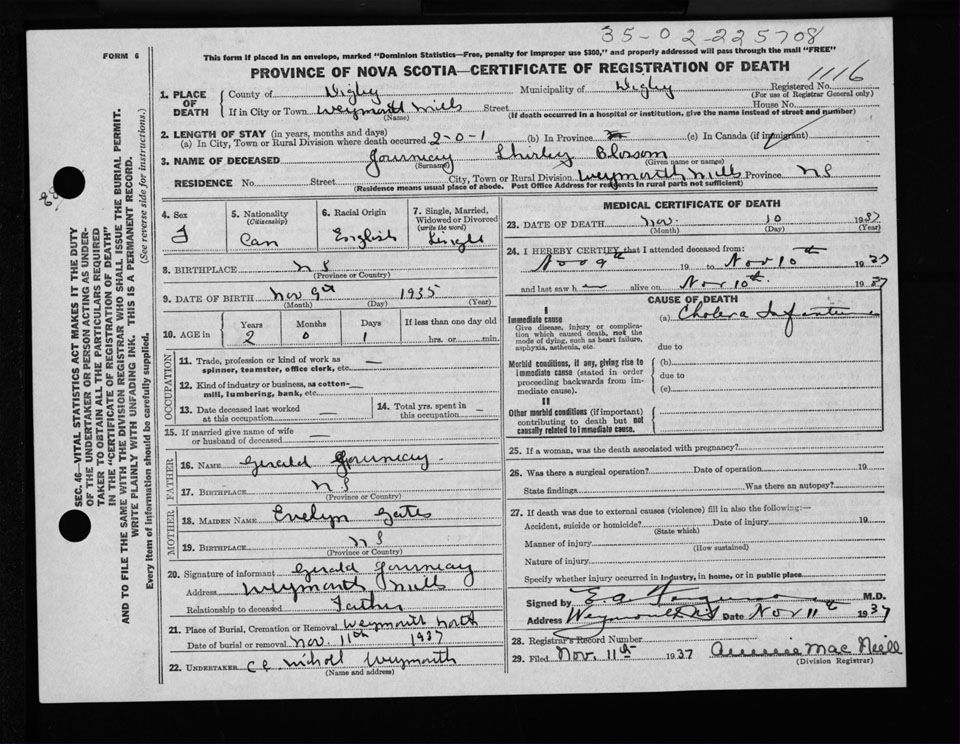 35-02-225708
FORM 6
This form if placed in an envelope, marked "Dominion Statistics—Free, penalty for improper use $300," and properly addressed will pass through the mail "FREE"
PROVINCE OF NOVA SCOTIA—CERTIFICATE OF REGISTRATION OF DEATH
1116
SEC. 46—VITAL STATISTICS ACT MAKES IT THE DUTY
OF THE UNDERTAKER OR PERSON ACTING AS UNDER-
TAKER TO OBTAIN ALL THE PARTICULARS REQUIRED
IN THE "CERTIFICATE OF REGISTRATION OF DEATH"
AND TO FILE THE SAME WITH THE DIVISION REGISTRAR WHO SHALL ISSUE THE BURIAL PERMIT.
WRITE PLAINLY WITH UNFADING INK. THIS IS A PERMANENT RECORD.
Every item of information should be carefully supplied. (See reverse side for instructions.)
1. PLACE OF DEATH County of Digby Municipality of Digby Registered No.
(For use of Registrar General only)
If in City or Town Weymouth Mills Street House No.
(Name) (If death occurred in a hospital or institution, give the name instead of street and number)
2. LENGTH OF STAY (in years, months and days)
(a) In City, Town or Rural Division where death occurred 2-0-1 (b) In Province (c) In Canada (if immigrant)
3. NAME OF DECEASED Journeay Shirley Blossom
(Surname) (Given name or names)
RESIDENCE No. Street City, Town or Rural Division Weymouth Mills Province NS
(Residence means usual place of abode. Post Office Address for residents in rural parts not sufficient)
4. Sex 5. Nationality 6. Racial Origin 7. Single, Married,
(Citizenship) Widowed or Divorced
(write the word)
F Can English Single
8. BIRTHPLACE NS
(Province or Country)
9. DATE OF BIRTH Nov 9th 1935
(Month) (Day) (Year)
10. AGE in Years Months Days If less than one day old
2 0 1 hrs. or min.
OCCUPATION
11. Trade, profession or kind of work as —
spinner, teamster, office clerk, etc.
12. Kind of industry or business, as cotton- —
mill, lumbering, bank, etc.
13. Date deceased last worked — 14. Total yrs. spent in —
at this occupation this occupation
15. If married give name of wife —
or husband of deceased
FATHER
16. NAME Gerald Journeay
17. BIRTHPLACE NS
(Province or Country)
MOTHER
18. MAIDEN NAME Evelyn Gates
19. BIRTHPLACE NS
(Province or Country)
20. Signature of informant Gerald Journeay
Address Weymouth Mills
Relationship to deceased Father
21. Place of Burial, Cremation or Removal Weymouth North
Date of burial or removal Nov. 11th 1937
22. UNDERTAKER Weymouth
(Name and address)
MEDICAL CERTIFICATE OF DEATH
23. DATE OF DEATH Nov. 10 1937
(Month) (Day) (Year)
24. I HEREBY CERTIFY that I attended deceased from:
Nov 9th 19 to Nov 10th 1937
and last saw h er alive on Nov 10th 1937
CAUSE OF DEATH
I
Immediate cause (a) Cholera Infantum
Give disease, injury or complica-
tion which caused death, not the
mode of dying, such as heart failure, due to
asphyxia, asthenia, etc.
Morbid conditions, if any, giving rise to (b)
immediate cause (stated in order due to
proceeding backwards from im-
mediate cause). (c)
II
Other morbid conditions (if important)
contributing to death but not
causally related to immediate cause.
25. If a woman, was the death associated with pregnancy?
26. Was there a surgical operation? Date of operation 19
State findings Was there an autopsy?
27. If death was due to external causes (violence) fill in also the following:—
Accident, suicide or homicide? Date of injury 19
(State which)
Manner of injury
(How sustained)
Nature of injury
Specify whether injury occurred in Industry, in home, or in public place
Signed by M.D.
Address Weymouth NS Date Nov 11th 1937
28. Registrar's Record Number
29. Filed Nov. 11th 1937 Annie Mac Neill
(Division Registrar)